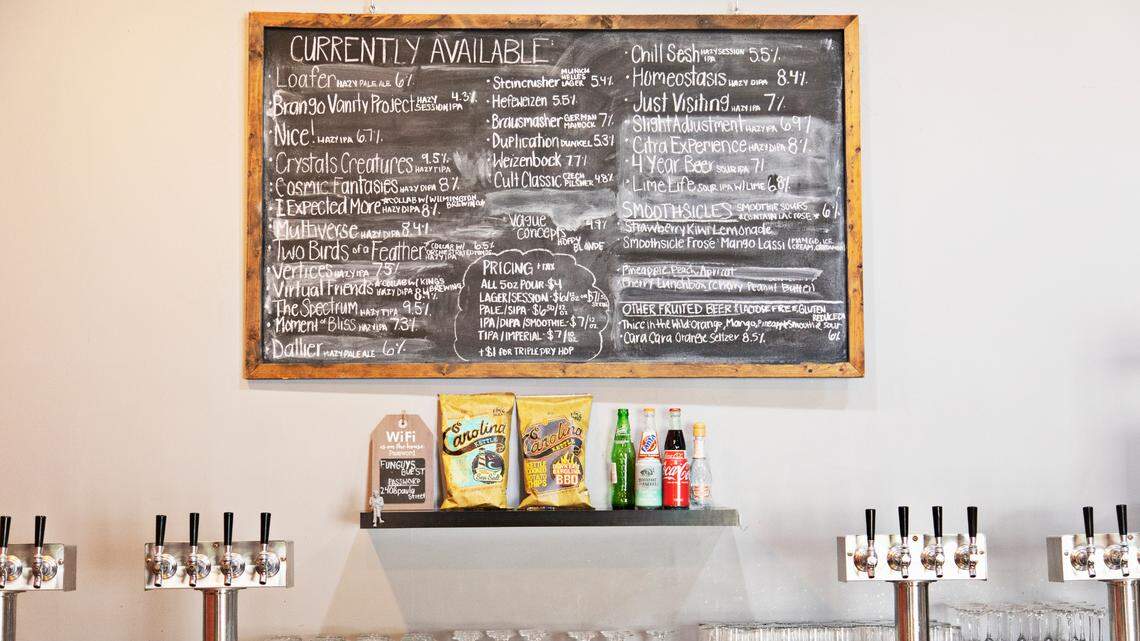 CURRENTLY AVAILABLE:
Loafer HAZY PALE ALE 6%
Brango Vanity Project HAZY SESSION IPA 4.3%
Nice! HAZY IPA 6.7%
Crystals Creatures HAZY TIPA 9.5%
Cosmic Fantasies HAZY DIPA 8%
I Expected More *COLLAB W/ WILMINGTON BREWING CO HAZY DIPA 8%
Multiverse HAZY DIPA 8.4%
Two Birds of a Feather *COLLAB W/ HAZY IPA 6.5%
Vertices HAZY IPA 7.5%
Virtual Friends *COLLAB W/ KINGS BREWING HAZY DIPA 8.4%
The Spectrum HAZY TIPA 9.5%
Moment of Bliss HAZY IPA 7.3%
Dallier HAZY PALE ALE 6%
Steincrusher MUNICH HELLES LAGER 5.4%
Hefeweizen 5.5%
Brausmasher GERMAN MAIBOCK 7%
Duplication DUNKEL 5.3%
Weizenbock 7.7%
Cult Classic CZECH PILSNER 4.8%
Vague Concepts HOPPY BLONDE 4.9%
PRICING + TAX
ALL 5OZ POUR - $4
LAGER/SESSION - $6/12oz or $7/.5 STEIN
PALE/SIPA - $6.50/12oz
IPA/DIPA/SMOOTHIE - $7/12oz
TIPA/IMPERIAL - $7/10oz
+$1 FOR TRIPLE DRY HOP
Chill Sesh HAZY SESSION IPA 5.5%
Homeostasis HAZY DIPA 8.4%
Just Visiting HAZY IPA 7%
Slight Adjustment HAZY IPA 6.9%
Citra Experience HAZY DIPA 8%
4 Year Beer SOUR IPA 7%
Lime Life SOUR IPA W/ LIME 6.8%
SMOOTHSICLES SMOOTHIE SOURS *CONTAIN LACTOSE* 6%
Strawberry Kiwi Lemonade
Smoothsicle Frosé Mango Lassi (MANGO, ICE CREAM, CARDAMOM)
Pineapple, Peach, Apricot
Cherry Lunchbox (Cherry Peanut Butter)
OTHER FRUITED BEER *LACTOSE FREE, GLUTEN REDUCED
Thicc in the Wild: Orange, Mango, Pineapple Smoothie Sour 6%
Cara Cara Orange Seltzer 8.5%
WiFi
is on the house
Password
FUNGUYS GUEST
PASSWORD
2408paula
street
Carolina
KETTLE
Sea Salt
Carolina
KETTLE
KETTLE
COOKED
POTATO
CHIPS
DOWN EAST
CAROLINA
BBQ
Fanta
Coca-Cola